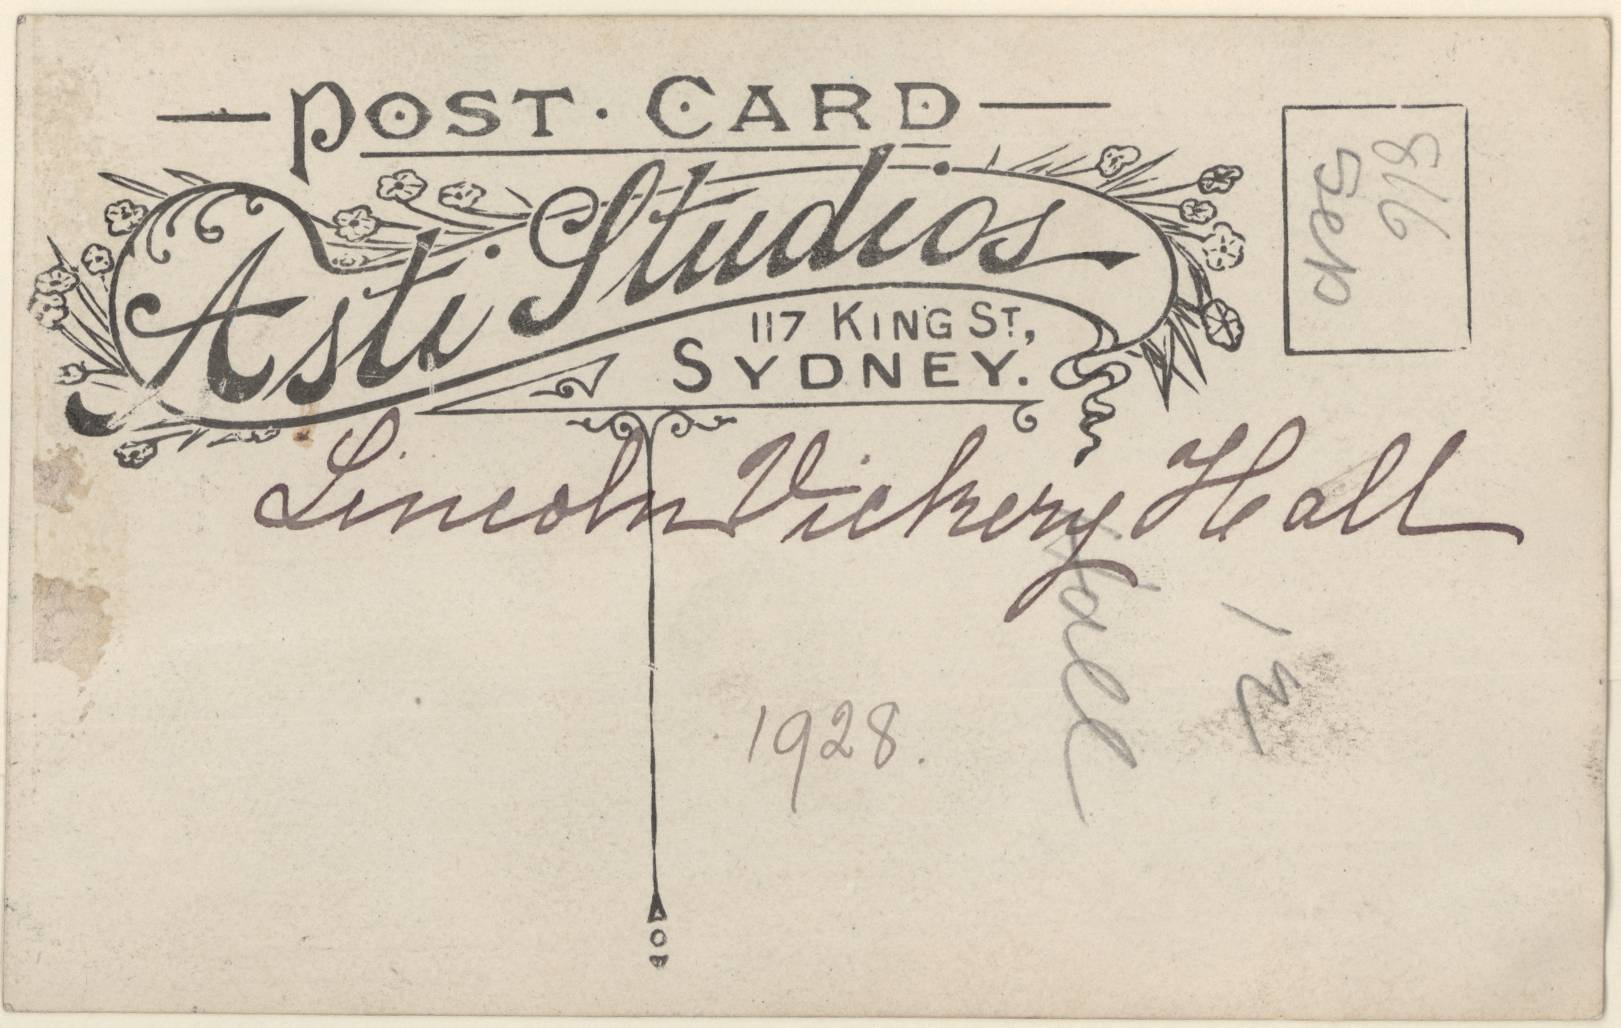 POST · CARD
Asti Studios
117 KING ST,
SYDNEY.
Sep
Lincoln Vickery Hall
Hall
1928.